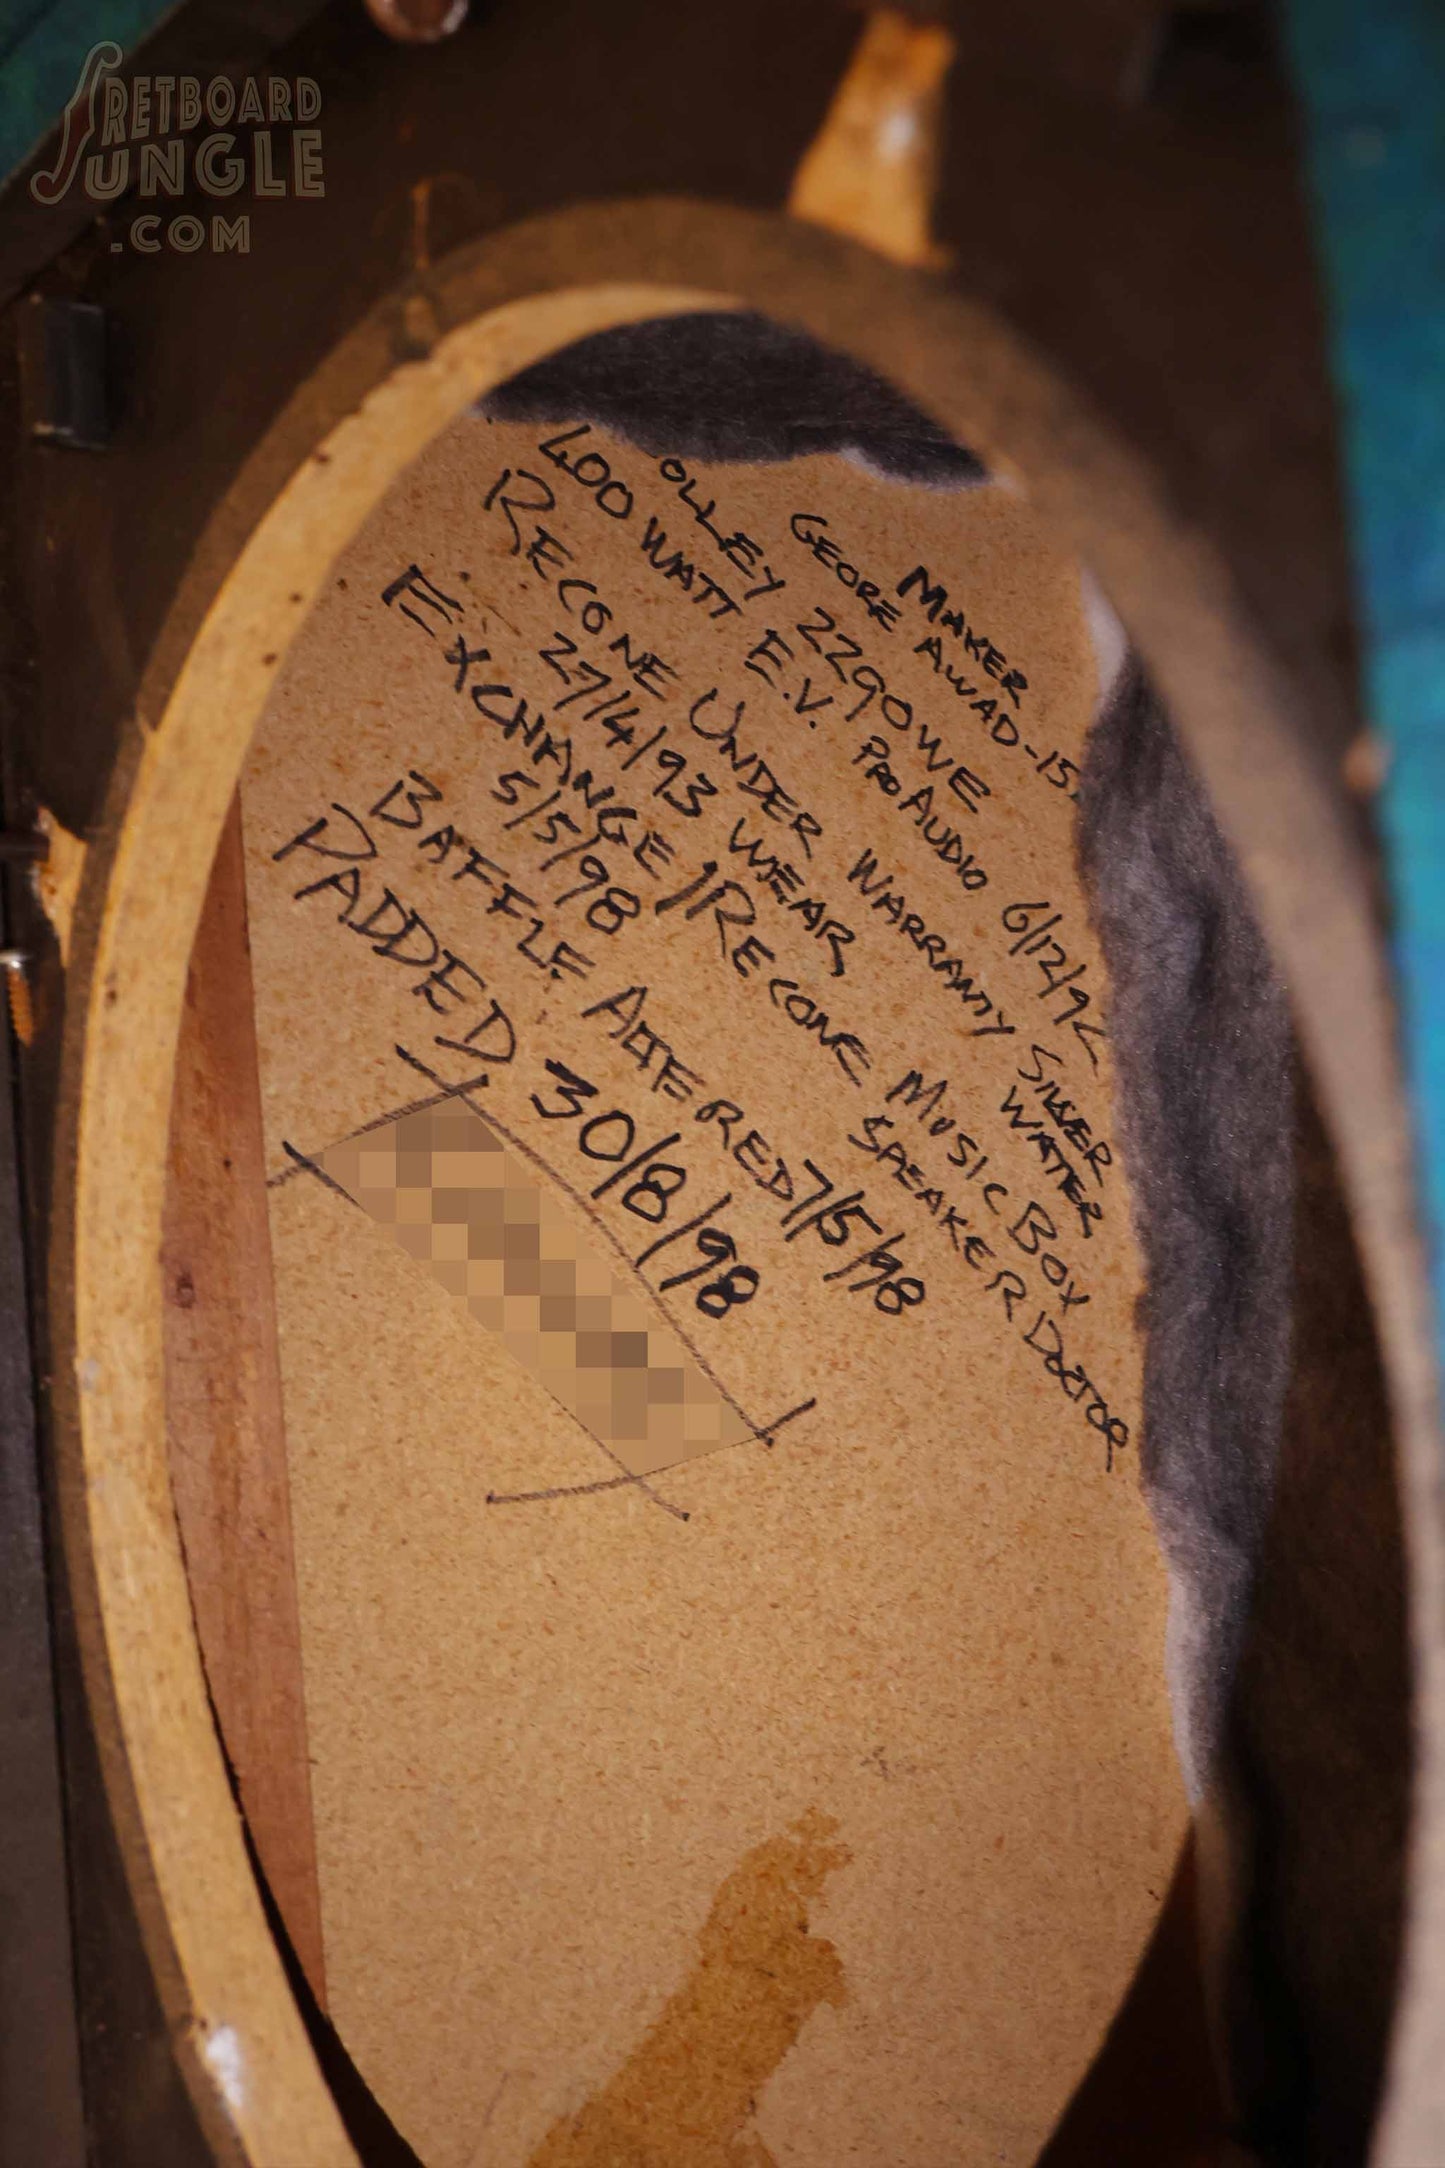 FRETBOARD
JUNGLE
.COM
MAKER
GEORE AWAD-15
OLLEY 2290WE
400 WATT E.V. PRO AUDIO 6/12/92
RECONE UNDER WARRANTY SILVER WATER
27/4/93 WEAR
EXCHANGE / RECONE MUSIC BOX
5/5/98 SPEAKER DOCTOR
BAFFLE ALTERED 7/5/98
PADDED 30/8/98